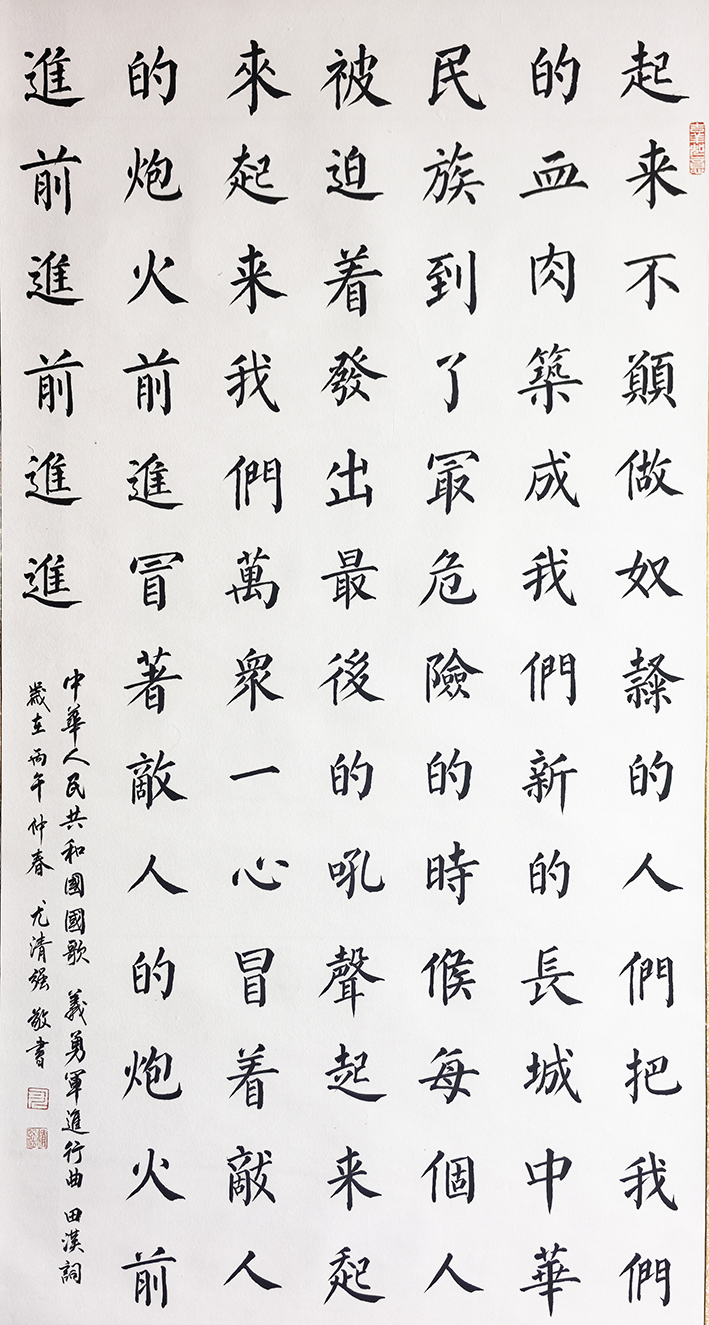 起来不願做奴隸的人們把我們
的血肉築成我們新的長城中華
民族到了冣危險的時候每個人
被迫着發出最後的吼聲起来起
來起来我們萬衆一心冒着敵人
的炮火前進冐著敵人的炮火前
進前進前進進
中華人民共和國國歌 義勇軍進行曲 田漢詞
歲在丙午仲春 尤清強敬書